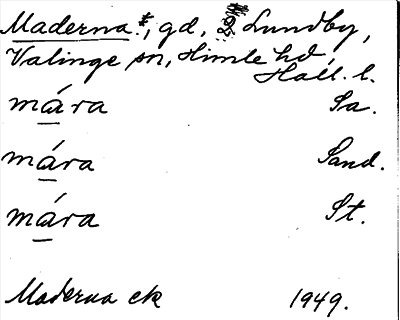 Maderna *, gd, 2 Lundby,
Valinge sn, Himle hd,
Hall. l.
mára Sa.
mára Sand.
mára St.
Maderna ek 1949.